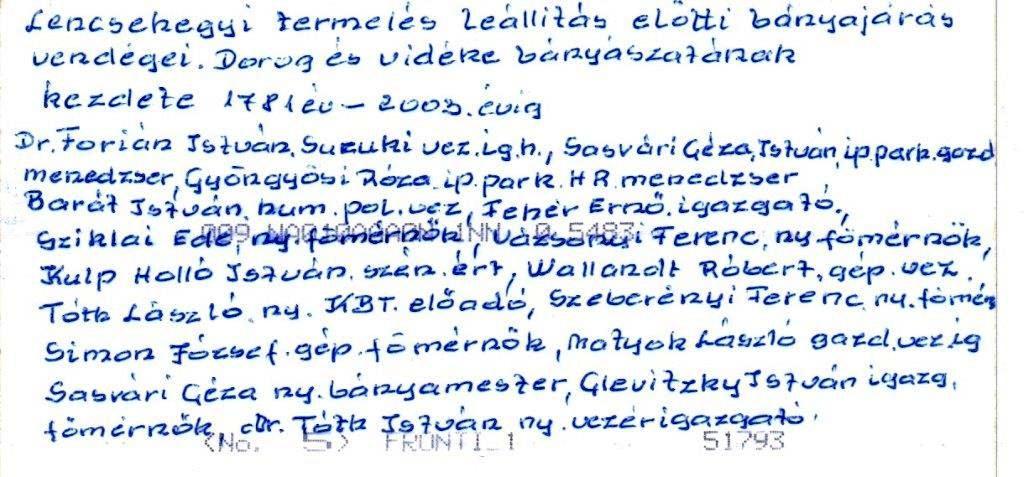 Lencsehegyi termelés leállitás előtti bányajárás
vendégei. Dorog és vidéke bányászatának
kezdete 1781 év – 2003. évig
Dr. Forián István. Suzuki vez.ig.h., Sasvári Géza, István, ip.park.gazd
menedzser, Gyöngyösi Róza ip.park. HR. menedzser
Barát István. hum. pol. vez, Fehér Ernő. igazgató.,
Sziklai Ede, ny. főmérnök, Vázsonyi Ferenc, ny. főmérnök,
Kulp Holló István. szén. ért, Wallandt Róbert, gép. vez.
Tóth László. ny. KBT. előadó, Szeberényi Ferenc ny. főmér
Simon József. gép. főmérnök, Matyok László gazd. vez ig
Sasvári Géza ny. bányamester, Glevitzky István igazg.
főmérnök, dr. Tóth István ny. vezérigazgató.
<No. 5> FRONTI_1 51793